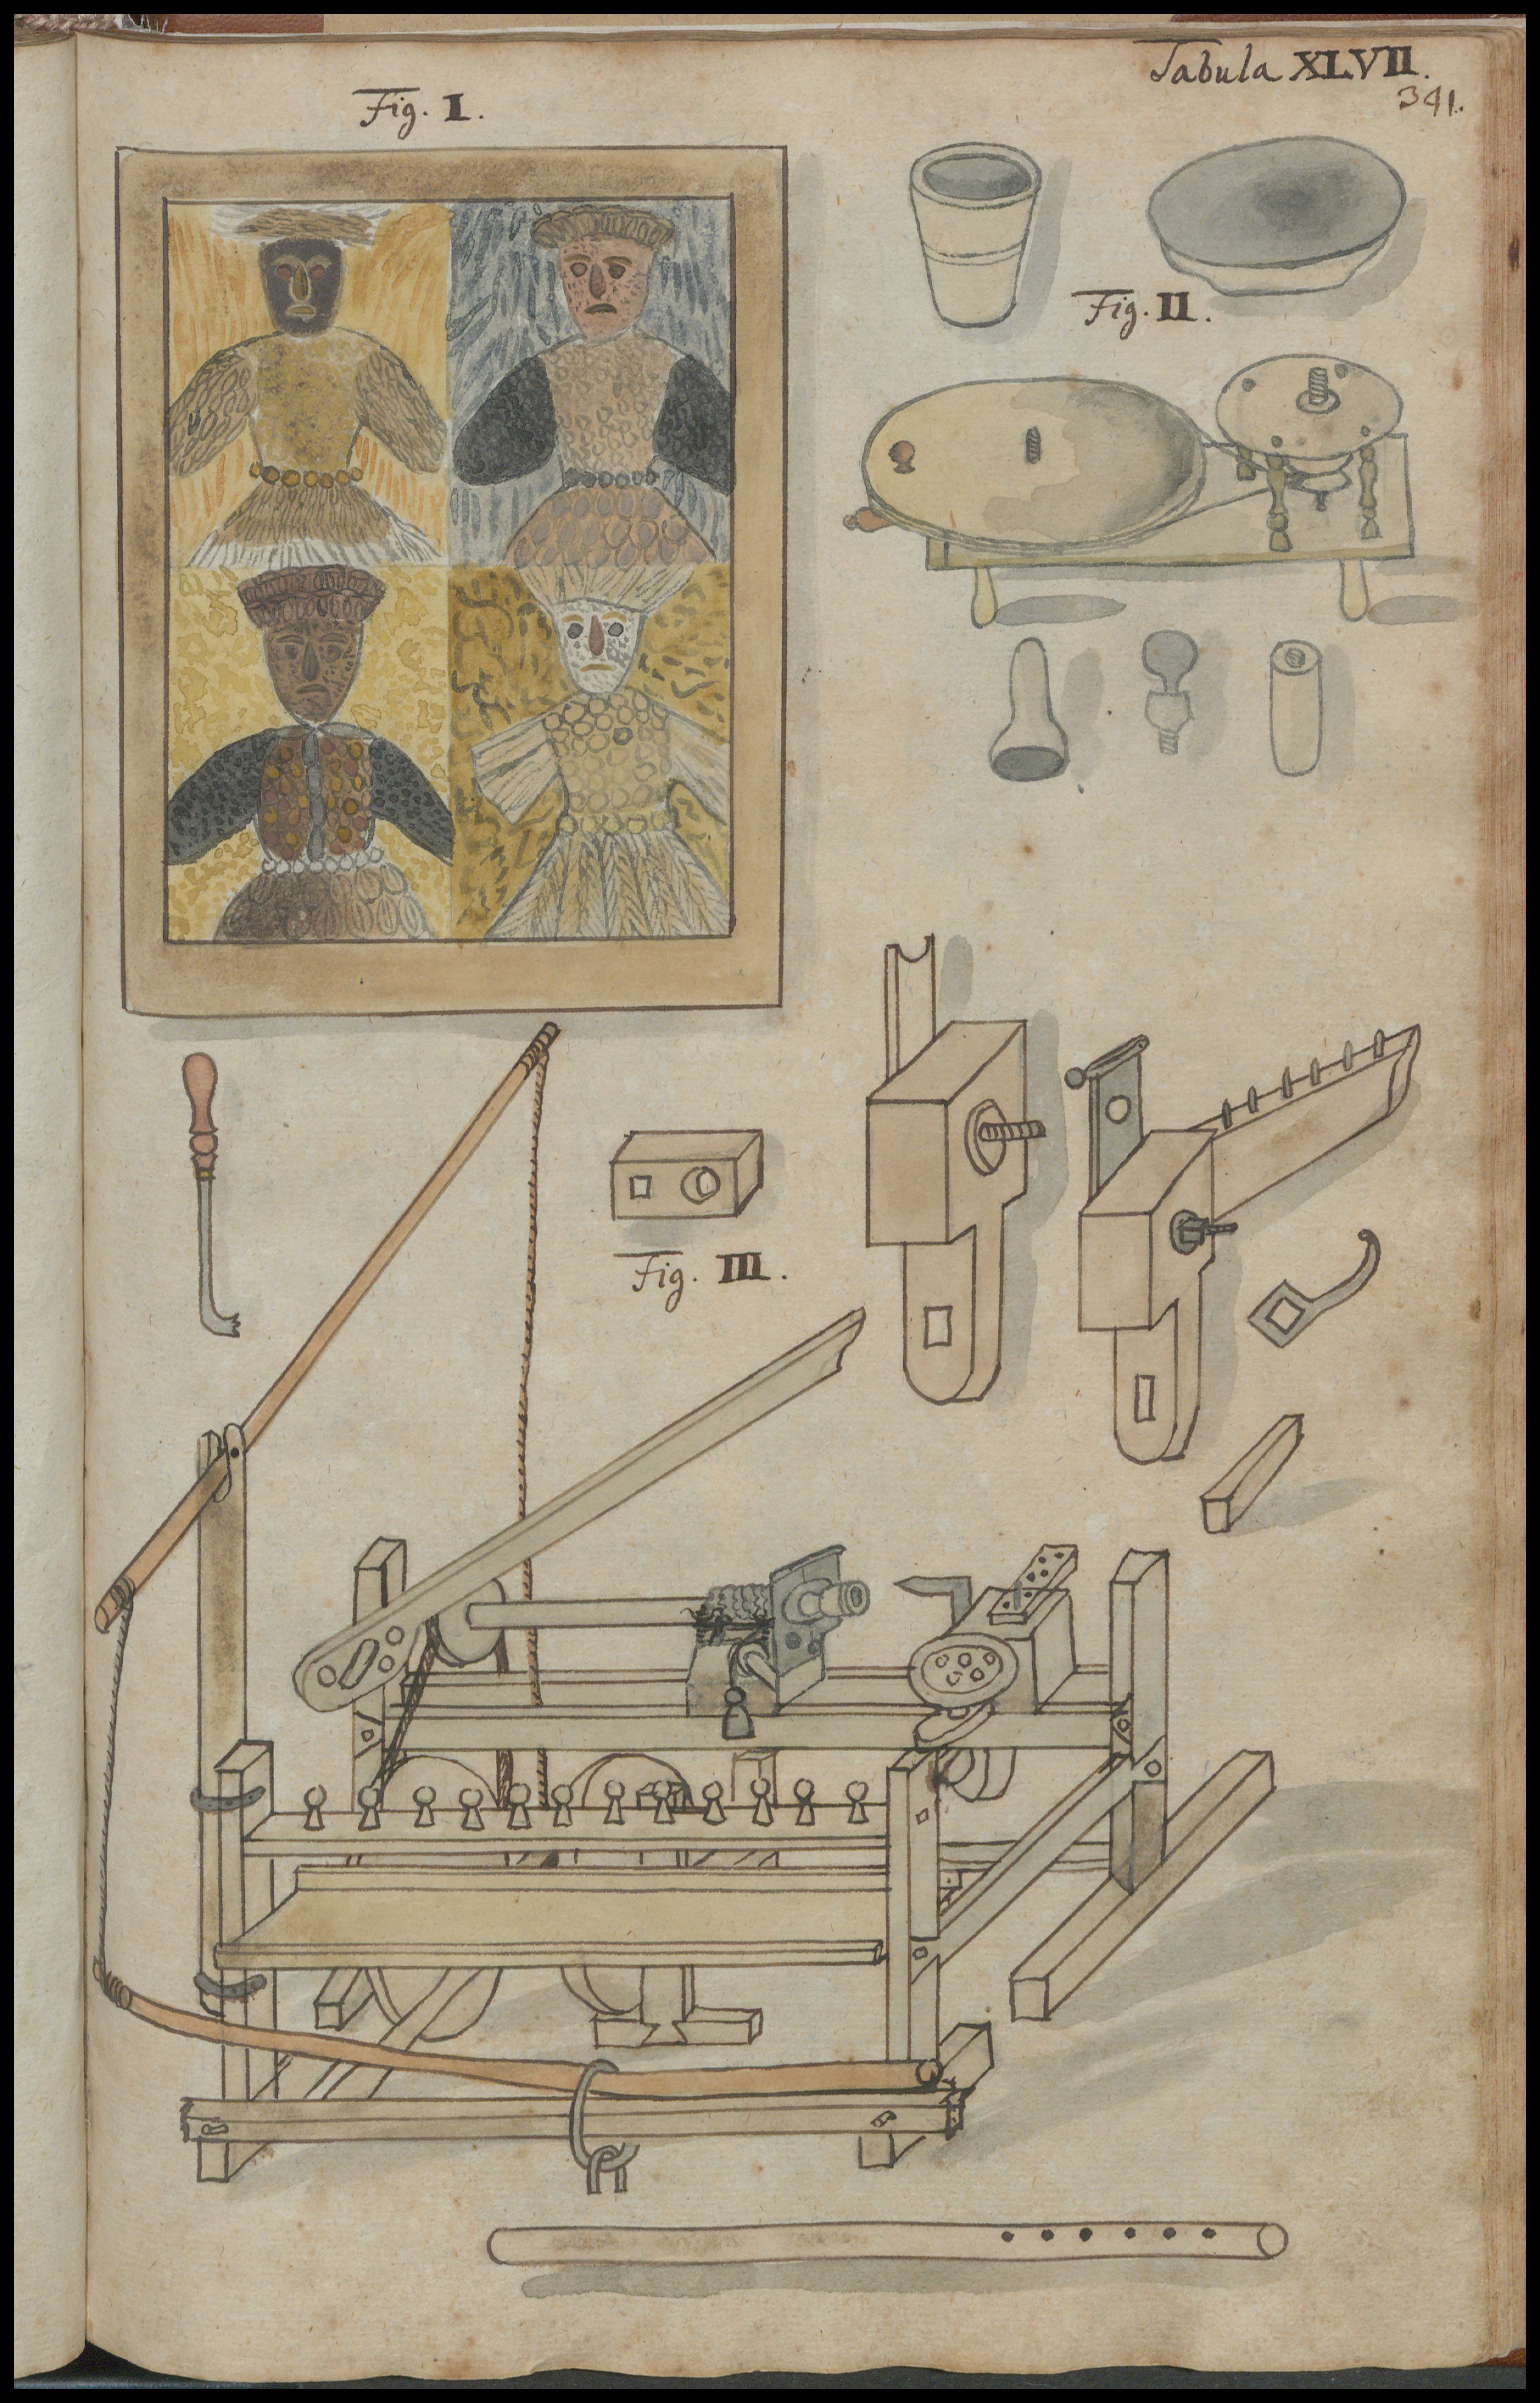 Tabula XLVII.
341.
Fig. I.
Fig. II.
Fig. III.